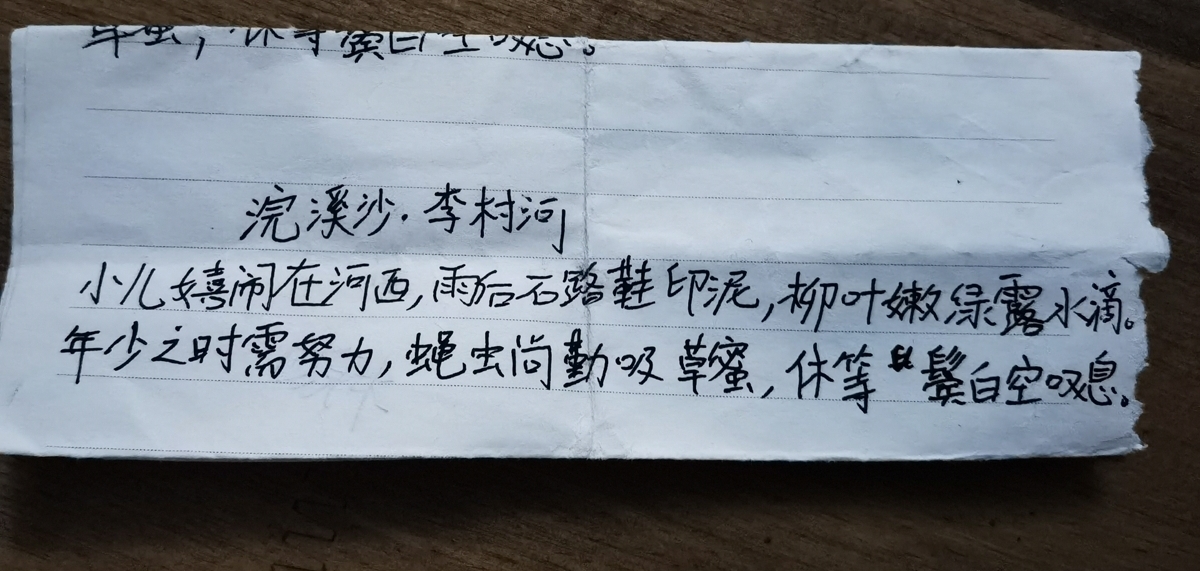 草蜜，休等鬓白空叹息。
浣溪沙·李村河
小儿嬉闹在河西，雨后石路鞋印泥，柳叶嫩绿露水滴。
年少之时需努力，蝇虫尚勤吸草蜜，休等鬓白空叹息。